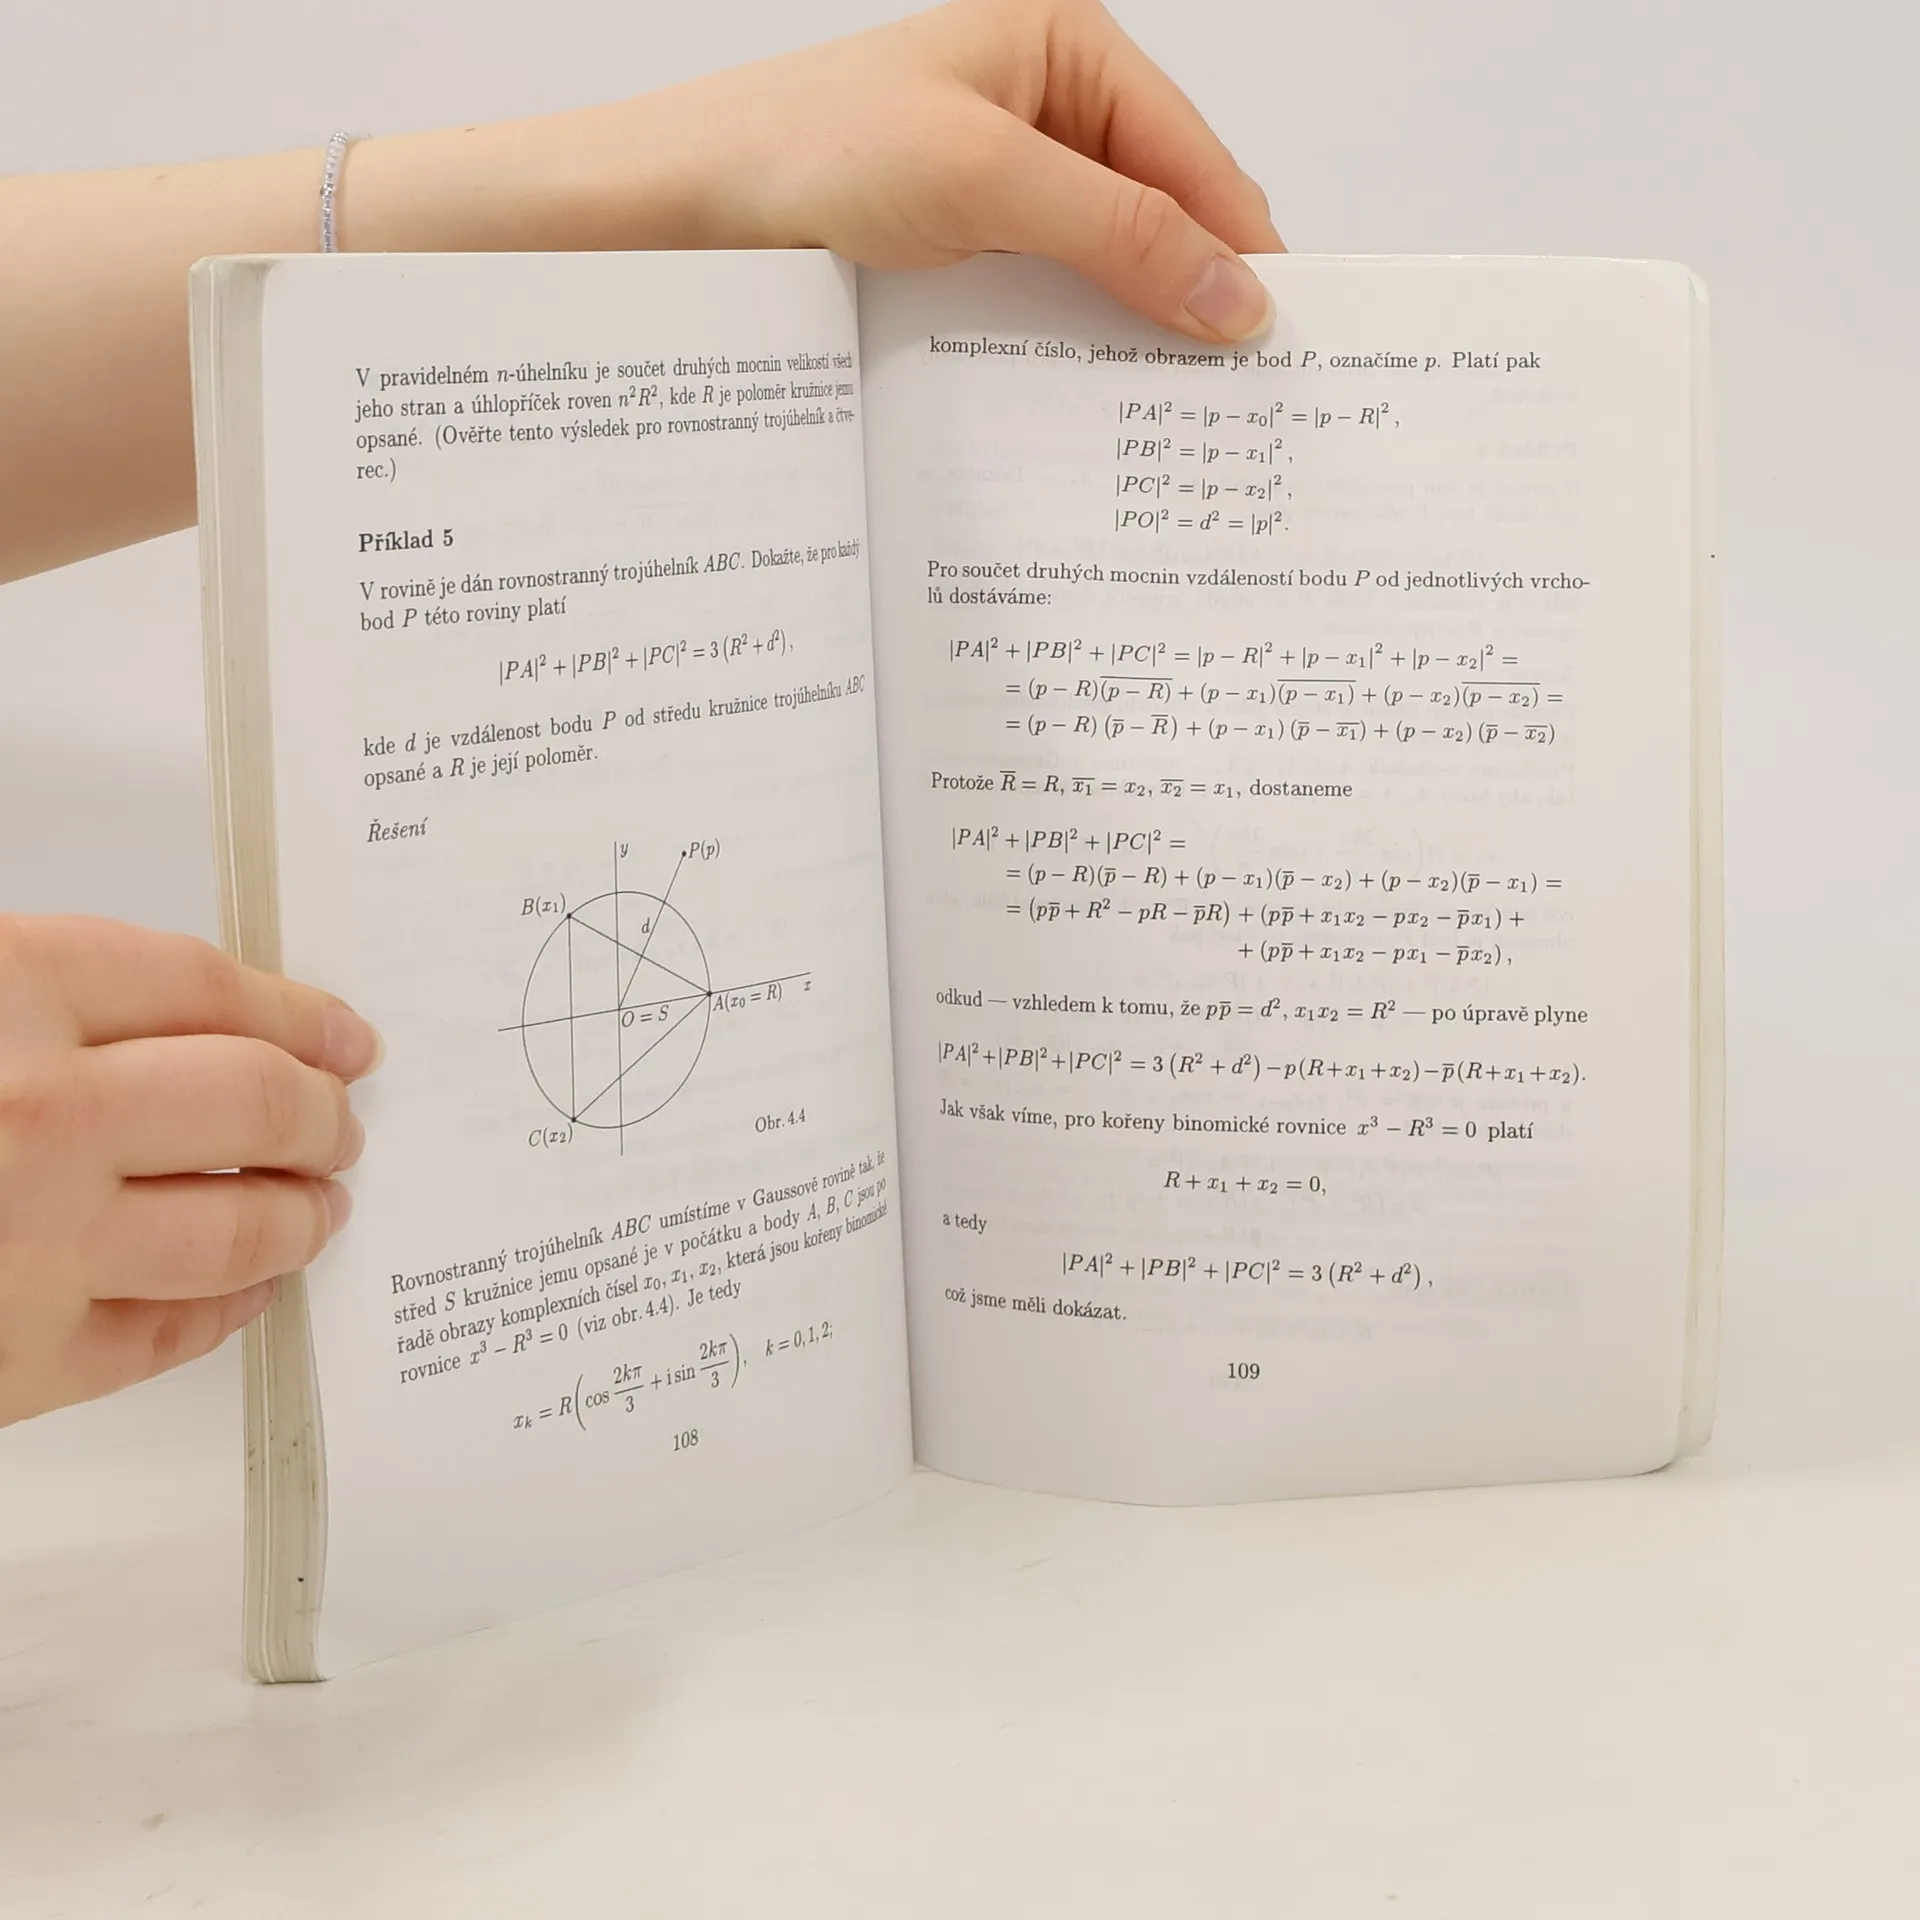 V pravidelném n-úhelníku je součet druhých mocnin velikostí všech
jeho stran a úhlopříček roven n²R², kde R je poloměr kružnice jemu
opsané. (Ověřte tento výsledek pro rovnostranný trojúhelník a čtve-
rec.)
Příklad 5
V rovině je dán rovnostranný trojúhelník ABC. Dokažte, že pro každý
bod P této roviny platí
|PA|² + |PB|² + |PC|² = 3 (R² + d²),
kde d je vzdálenost bodu P od středu kružnice trojúhelníku ABC
opsané a R je její poloměr.
Řešení
y
P(p)
B(x₁)
d
A(x₀ = R)
x
O = S
C(x₂)
Obr. 4.4
Rovnostranný trojúhelník ABC umístíme v Gaussově rovině tak, že
střed S kružnice jemu opsané je v počátku a body A, B, C jsou po
řadě obrazy komplexních čísel x₀, x₁, x₂, která jsou kořeny binomické
rovnice x³ − R³ = 0 (viz obr. 4.4). Je tedy
xₖ = R(cos 2kπ/3 + i sin 2kπ/3), k = 0, 1, 2;
108
komplexní číslo, jehož obrazem je bod P, označíme p. Platí pak
|PA|² = |p − x₀|² = |p − R|²,
|PB|² = |p − x₁|²,
|PC|² = |p − x₂|²,
|PO|² = d² = |p|².
Pro součet druhých mocnin vzdáleností bodu P od jednotlivých vrcho-
lů dostáváme:
|PA|² + |PB|² + |PC|² = |p − R|² + |p − x₁|² + |p − x₂|² =
= (p − R)(p̅ ̅−̅ ̅R̅) + (p − x₁)(p̅ ̅−̅ ̅x̅₁̅) + (p − x₂)(p̅ ̅−̅ ̅x̅₂̅) =
= (p − R) (p̅ − R̅) + (p − x₁) (p̅ − x̅₁̅) + (p − x₂) (p̅ − x̅₂̅)
Protože R̅ = R, x̅₁̅ = x₂, x̅₂̅ = x₁, dostaneme
|PA|² + |PB|² + |PC|² =
= (p − R)(p̅ − R) + (p − x₁)(p̅ − x₂) + (p − x₂)(p̅ − x₁) =
= (pp̅ + R² − pR − p̅R) + (pp̅ + x₁x₂ − px₂ − p̅x₁) +
+ (pp̅ + x₁x₂ − px₁ − p̅x₂),
odkud — vzhledem k tomu, že pp̅ = d², x₁x₂ = R² — po úpravě plyne
|PA|²+|PB|²+|PC|² = 3 (R² + d²) − p(R+x₁+x₂) − p̅(R+x₁+x₂).
Jak však víme, pro kořeny binomické rovnice x³ − R³ = 0 platí
R + x₁ + x₂ = 0,
a tedy
|PA|² + |PB|² + |PC|² = 3 (R² + d²),
což jsme měli dokázat.
109